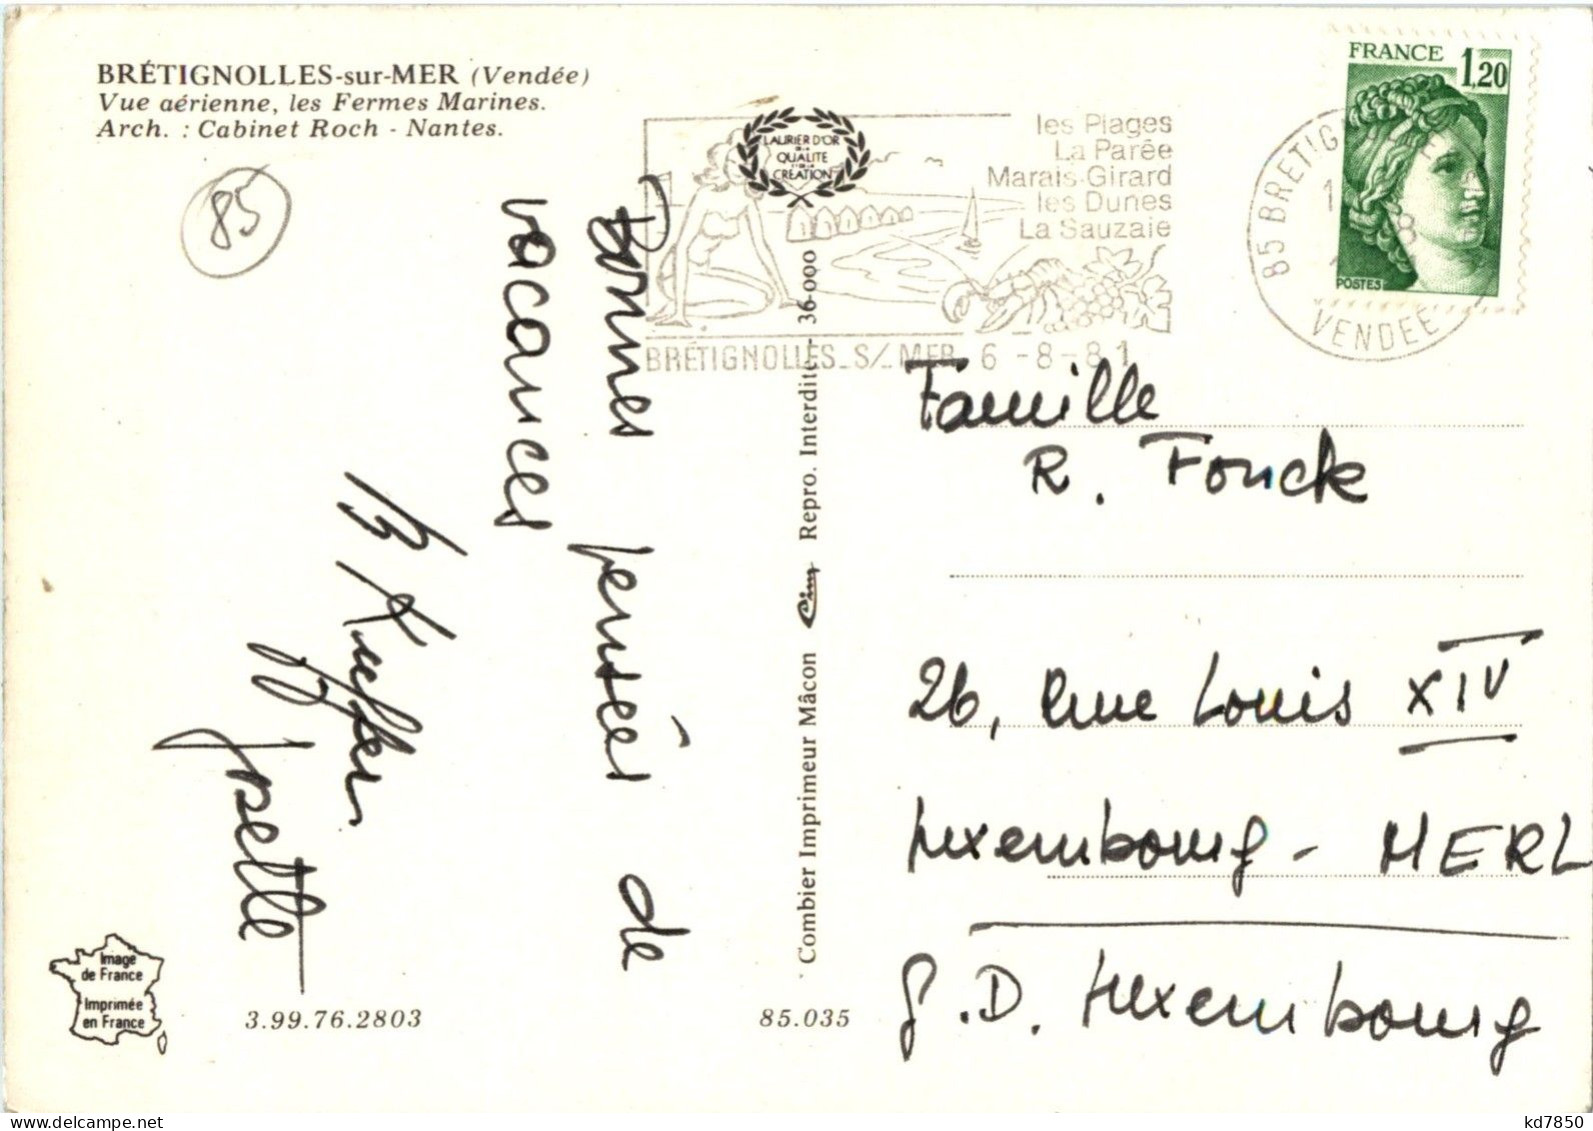 BRÉTIGNOLLES-sur-MER (Vendée)
Vue aérienne, les Fermes Marines.
Arch. : Cabinet Roch - Nantes.
85
LAURIER D'OR
DE LA
QUALITE
ET DE LA
CREATION
les Plages
La Parée
Marais-Girard
les Dunes
La Sauzaie
BRÉTIGNOLLES_S/_MER 6 -8-81
85 BRETIG
VENDEE
FRANCE 1,20
POSTES
Bonnes pensées de
vacances
Josette
Combier Imprimeur Mâcon Cim Repro. Interdite - 36-000
Famille
R. Fonck
26, Rue Louis XIV
Luxembourg - MERL
G.D. Luxembourg
Image
de France
Imprimée
en France
3.99.76.2803
85.035
delcampe.net
kd7850